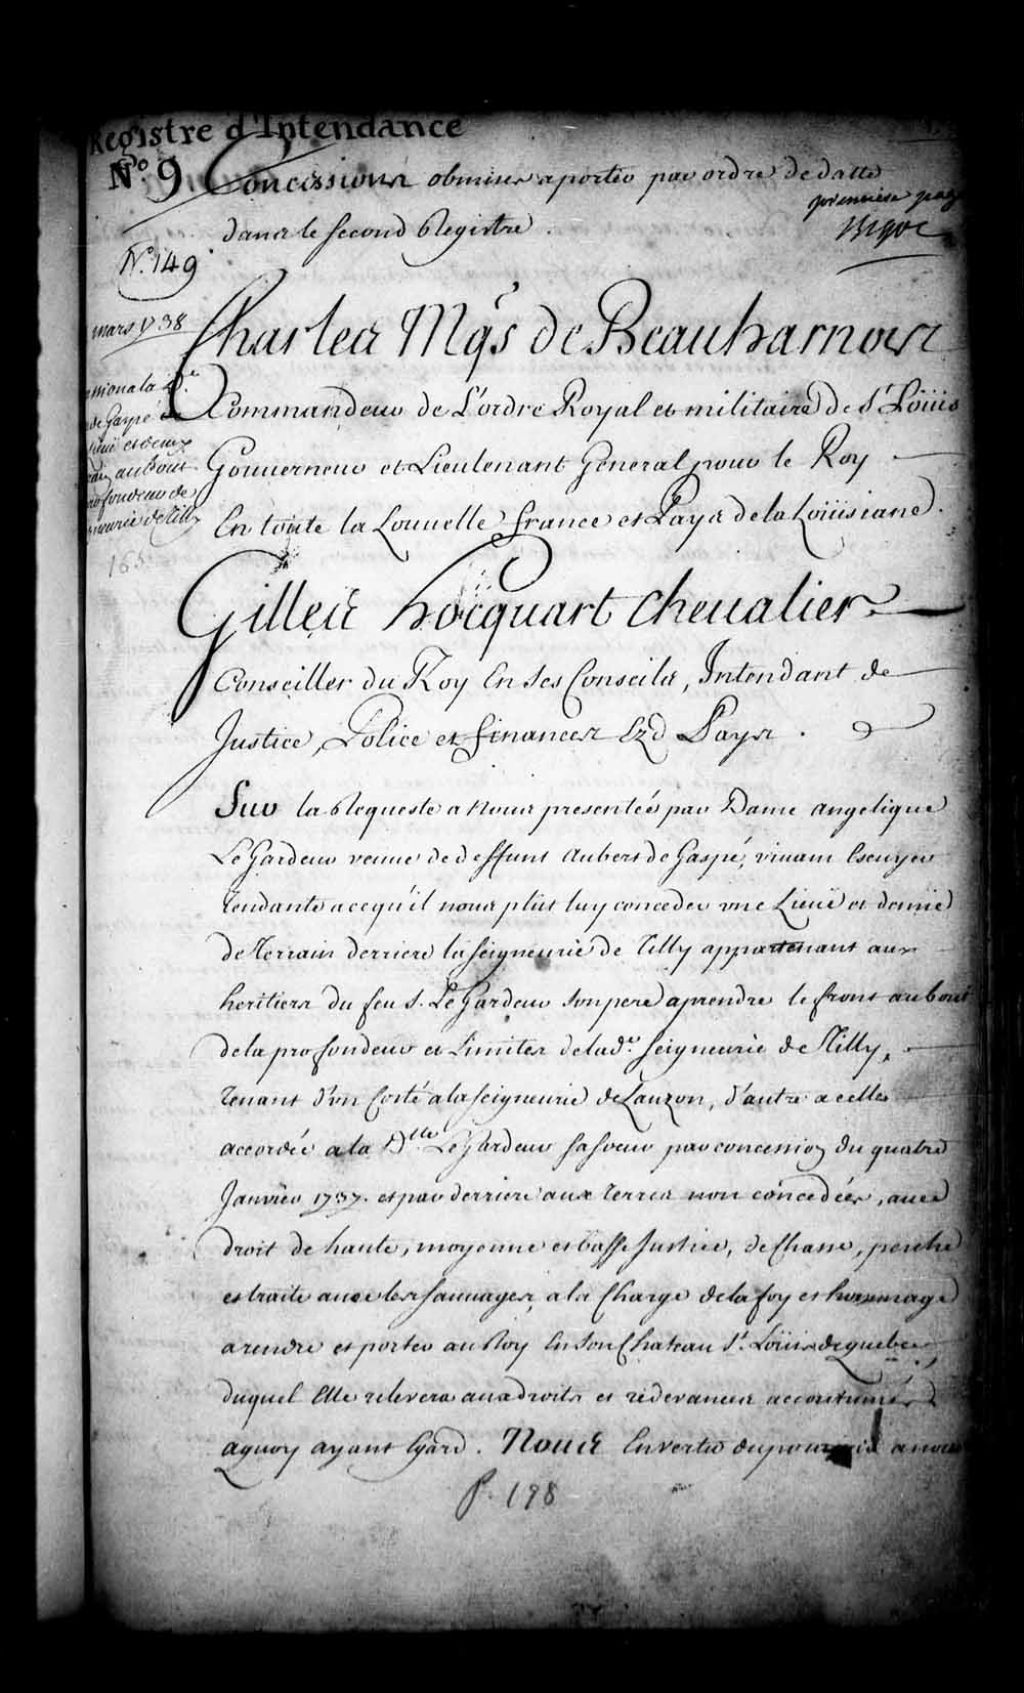 Registre d'Intendance
No. 9 Concessions obmises a porter par ordre de datte
premiere page
dans le second Registre.
Bigot
No. 149
mars 1738
Charles Mqs de Beauharnois
Commandeur de L'ordre Royal et militaire de St Loüis
de Gaspé
Gouverneur et Lieutenant General pour le Roy
au bout
profondeur de
En toute la Nouvelle france et Pays de la Loüisiane.
de Tilly
165
Gilles hocquart chevalier
Conseiller du Roy En ses Conseils, Intendant de
Justice, Police et finances Ezd Pays.
Sur la Requeste a Nous presentée par Dame angelique
LeGardeur veuve de deffunt Aubert de Gaspé, vivant Escuyer
tendante a ce qu'il nous plut luy conceder une Lieuë et demie
de terrain derriere la seigneurie de Tilly appartenant aux
heritiers du feu S. LeGardeur son pere a prendre le front au bout
de la profondeur et Limites de lade. seigneurie de Tilly,
tenant d'un costé a la seigneurie de Lauzon, d'autre a celle
accordée a la Dlle LeGardeur sa soeur par concession du quatre
Janvier 1737. et par derriere aux terres non concedées, avec
droit de haute, moyenne et basse Justice, de Chasse, pesche
et traite avec les sauvages, a la Charge de la foy et hommage
a rendre et porter au Roy En son Chateau St. Loüis de quebec
duquel Elle relevera aux droits et redevances accoutumés
a quoy ayant Egard. Nous En vertu du pouvoir a nous
P. 198